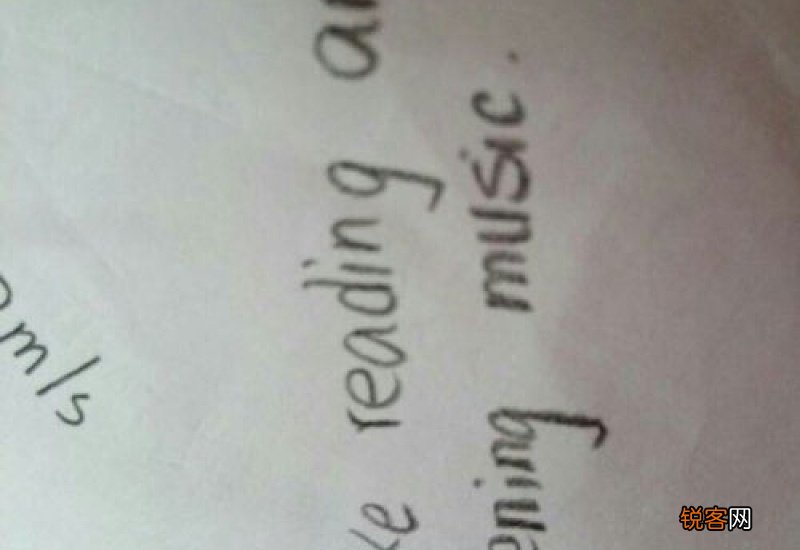 m/s
ke reading a
ening music.
锐客网